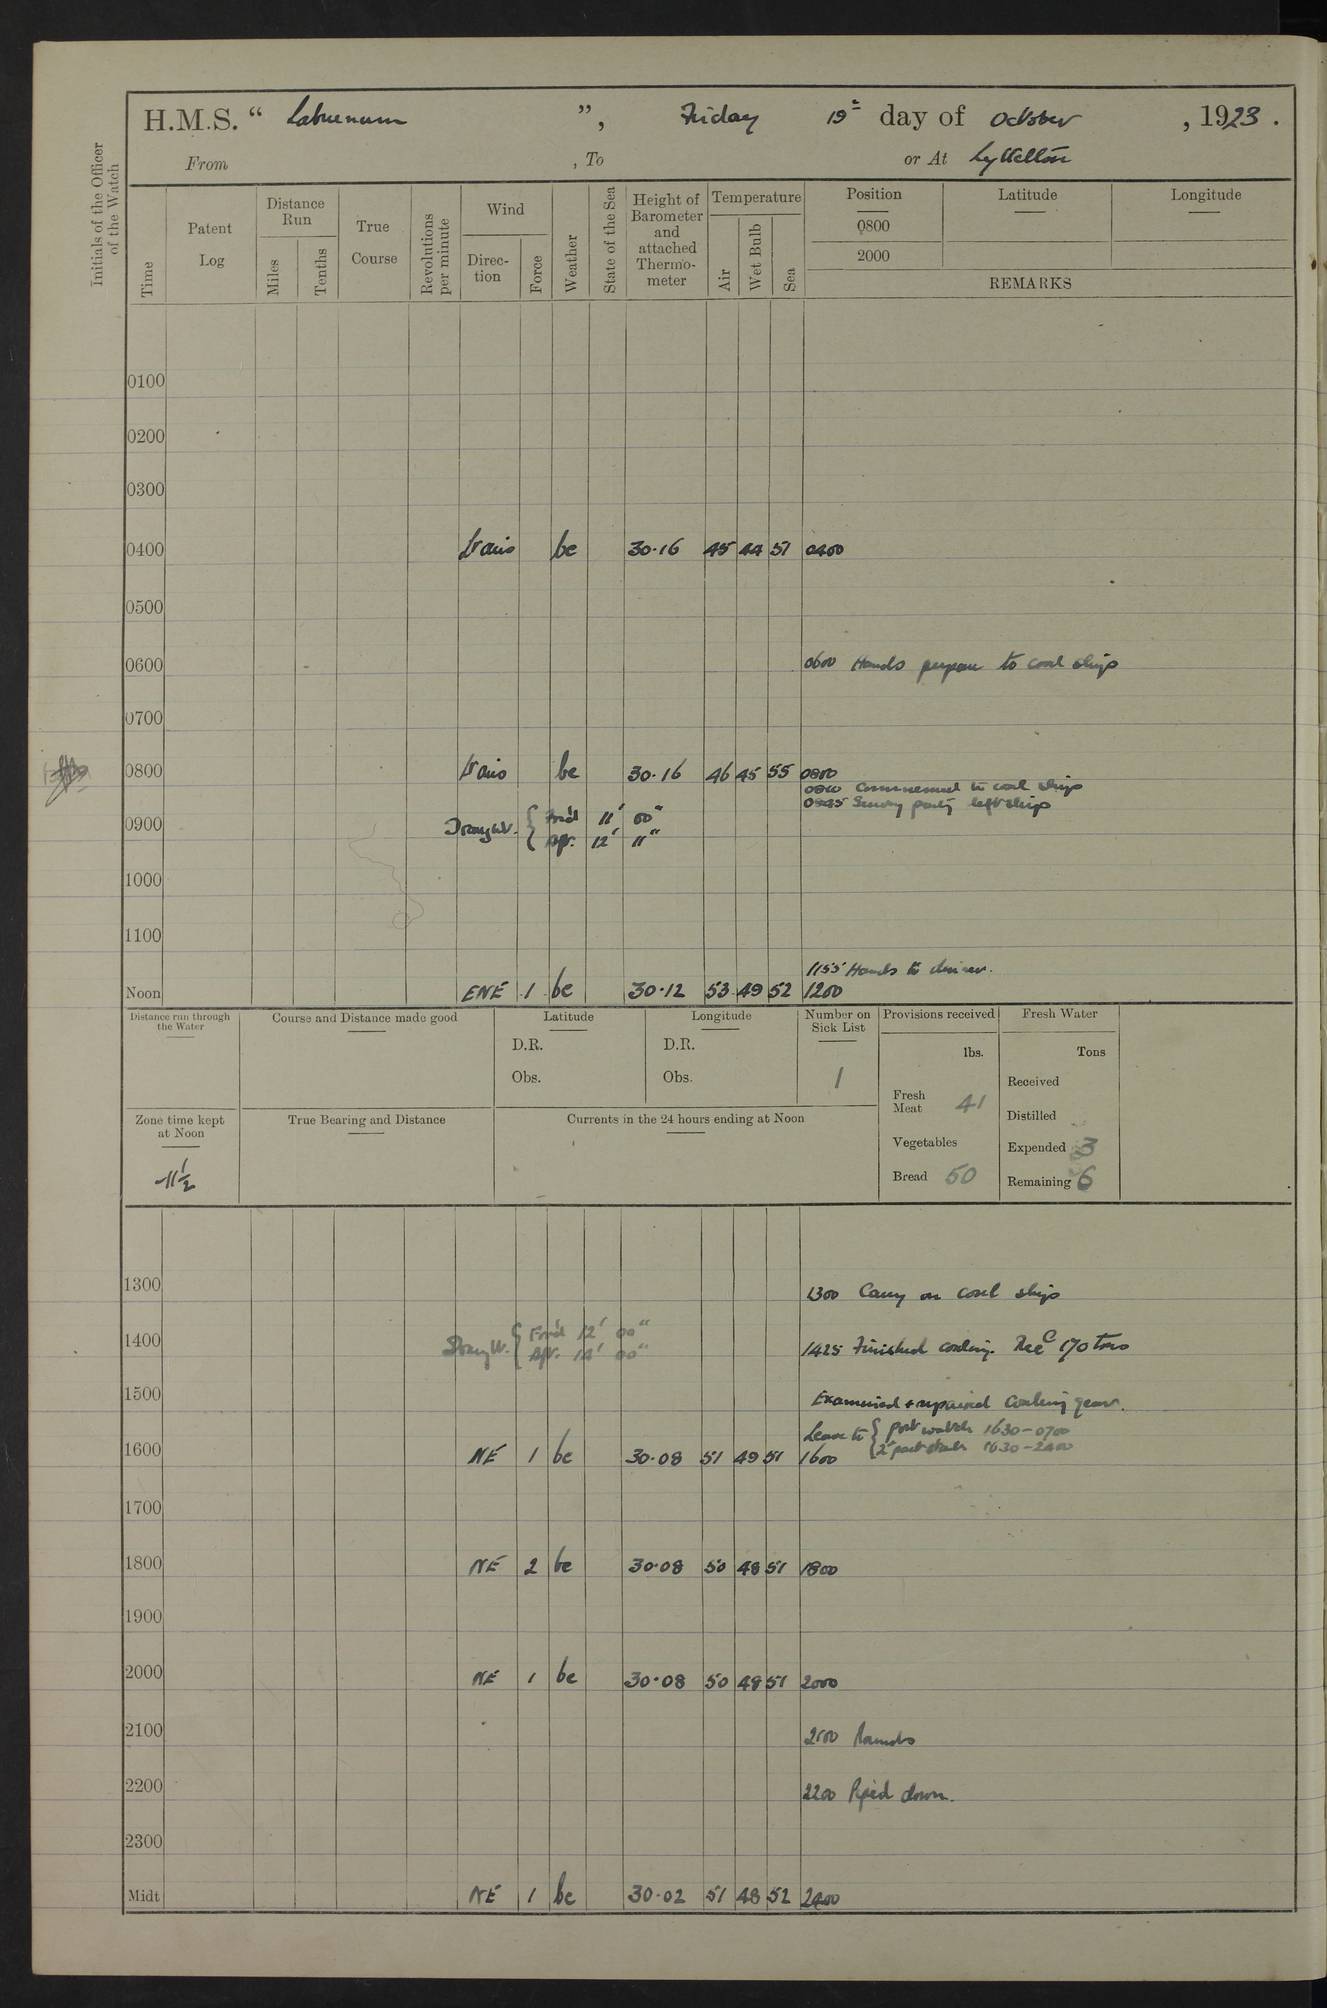 H.M.S. “ Laburnum ”, Friday 19th day of October, 1923.
From , To or At Lyttelton
Initials of the Officer of the Watch
Time
Patent Log
Distance Run
Miles
Tenths
True Course
Revolutions per minute
Wind
Direc-tion
Force
Weather
State of the Sea
Height of Barometer and attached Thermo-meter
Temperature
Air
Wet Bulb
Sea
Position
0800
2000
Latitude
Longitude
REMARKS
0100
0200
0300
0400 Lt airs bc 30.16 45 44 51 0400
0500
0600 0600 Hands prepare to coal ship
0700
0800 Lt airs bc 30.16 46 45 55 0800
0810 Commenced to coal ship
0845 Survey party left ship
0900 Draught. { For'd 11' 00"
Aft. 12' 11"
1000
1100
1155 Hands to dinner.
Noon ENE 1 bc 30.12 53 49 52 1200
Distance run through the Water
Course and Distance made good
Latitude
D.R.
Obs.
Longitude
D.R.
Obs.
Number on Sick List
1
Provisions received
lbs.
Fresh Meat 41
Vegetables
Bread 50
Fresh Water
Tons
Received
Distilled
Expended 3
Remaining 6
Zone time kept at Noon
-11½
True Bearing and Distance
Currents in the 24 hours ending at Noon
1300 1300 Carry on coal ship
1400 Draught. { For'd 12' 00"
Aft. 14' 00"
1425 Finished coaling. Recd 170 tons
1500 Examined + repaired Coaling gear.
Leave to { port watch 1630-0700
2nd part stbd 1630-2400
1600 NE 1 bc 30.08 51 49 51 1600
1700
1800 NE 2 bc 30.08 50 48 51 1800
1900
2000 NE 1 bc 30.08 50 48 51 2000
2100 2100 Rounds
2200 2200 Piped down.
2300
Midt NE 1 bc 30.02 51 48 52 2400